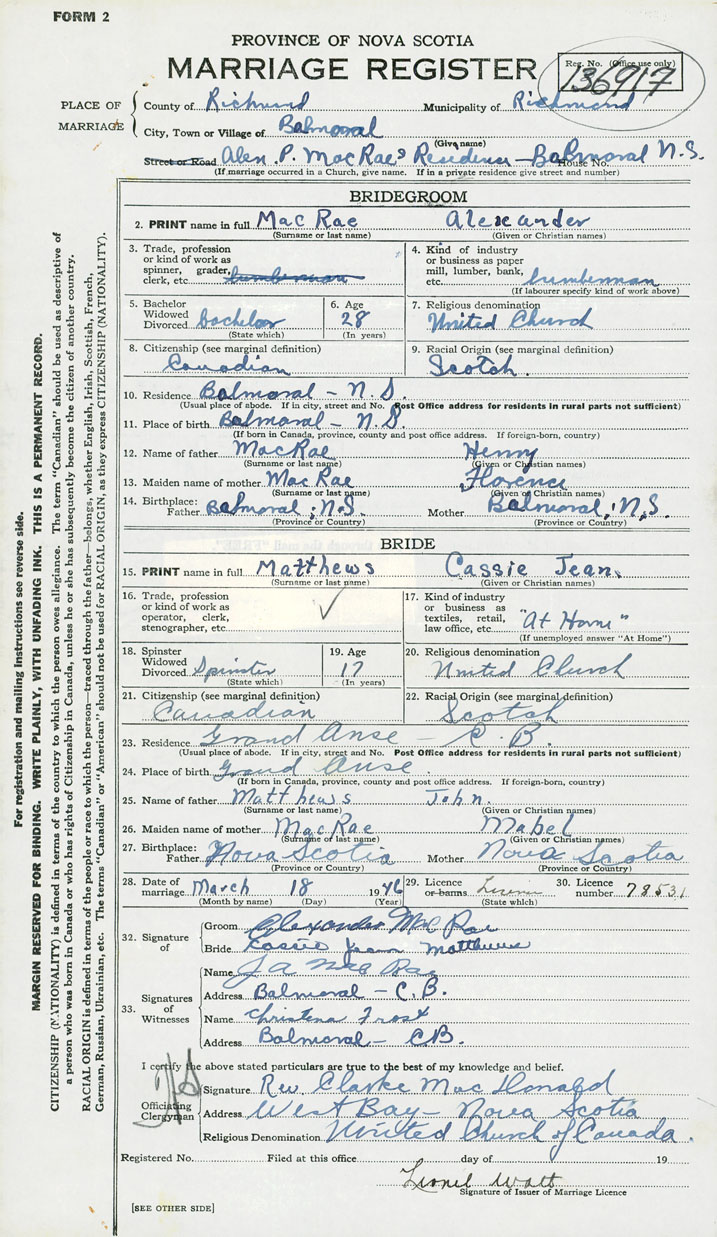 FORM 2
PROVINCE OF NOVA SCOTIA
MARRIAGE REGISTER
Reg. No. (Office use only)
136917
PLACE OF MARRIAGE
County of Richmond Municipality of Richmond
City, Town or Village of Balmoral
(Give name)
Street or Road Alex. P. MacRae's Residence – Balmoral N.S. House No.
(If marriage occurred in a Church, give name. If in a private residence give street and number)
BRIDEGROOM
2. PRINT name in full MacRae Alexander
(Surname or last name) (Given or Christian names)
3. Trade, profession or kind of work as spinner, grader, clerk, etc. lumberman
4. Kind of industry or business as paper mill, lumber, bank, etc. lumberman
(If labourer specify kind of work above)
5. Bachelor Widowed Divorced bachelor
(State which)
6. Age 28
(In years)
7. Religious denomination
United Church
8. Citizenship (see marginal definition)
Canadian
9. Racial Origin (see marginal definition)
Scotch.
10. Residence Balmoral – N.S.
(Usual place of abode. If in city, street and No. Post Office address for residents in rural parts not sufficient)
11. Place of birth Balmoral – N.S.
(If born in Canada, province, county and post office address. If foreign-born, country)
12. Name of father MacRae Henry
(Surname or last name) (Given or Christian names)
13. Maiden name of mother MacRae Florence
(Surname or last name) (Given or Christian names)
14. Birthplace: Father Balmoral, N.S. Mother Balmoral, N.S.
(Province or Country) (Province or Country)
BRIDE
15. PRINT name in full Matthews Cassie Jean.
(Surname or last name) (Given or Christian names)
16. Trade, profession or kind of work as operator, clerk, stenographer, etc. ✓
17. Kind of industry or business as textiles, retail, law office, etc. "At Home"
(If unemployed answer "At Home")
18. Spinster Widowed Divorced Spinster
(State which)
19. Age 17
(In years)
20. Religious denomination
United Church
21. Citizenship (see marginal definition)
Canadian
22. Racial Origin (see marginal definition)
Scotch
23. Residence Grand Anse – C.B.
(Usual place of abode. If in city, street and No. Post Office address for residents in rural parts not sufficient)
24. Place of birth Grand Anse
(If born in Canada, province, county and post office address. If foreign-born, country)
25. Name of father Matthews John.
(Surname or last name) (Given or Christian names)
26. Maiden name of mother MacRae Mabel
(Surname or last name) (Given or Christian names)
27. Birthplace: Father Nova Scotia Mother Nova Scotia
(Province or Country) (Province or Country)
28. Date of marriage March 18 1946
(Month by name) (Day) (Year)
29. Licence or banns License
(State which)
30. Licence number 78531
32. Signature of
Groom Alexander MacRae
Bride Cassie Jean Matthews
33. Signatures of Witnesses
Name J A MacRae
Address Balmoral – C.B.
Name Christena Frost
Address Balmoral – CB.
I certify the above stated particulars are true to the best of my knowledge and belief.
Officiating Clergyman
Signature Rev Clarke MacDonald
Address West Bay – Nova Scotia
Religious Denomination United Church of Canada.
Registered No. Filed at this office day of 19
Lionel Watt
Signature of Issuer of Marriage Licence
[SEE OTHER SIDE]
For registration and mailing instructions see reverse side.
MARGIN RESERVED FOR BINDING. WRITE PLAINLY, WITH UNFADING INK. THIS IS A PERMANENT RECORD.
CITIZENSHIP (NATIONALITY) is defined in terms of the country to which the person owes allegiance. The term "Canadian" should be used as descriptive of
a person who was born in Canada or who has rights of Citizenship in Canada, unless he or she has subsequently become the citizen of another country.
RACIAL ORIGIN is defined in terms of the people or race to which the person—traced through the father—belongs, whether English, Irish, Scottish, French,
German, Russian, Ukrainian, etc. The terms "Canadian" or "American" should not be used for RACIAL ORIGIN, as they express CITIZENSHIP (NATIONALITY).